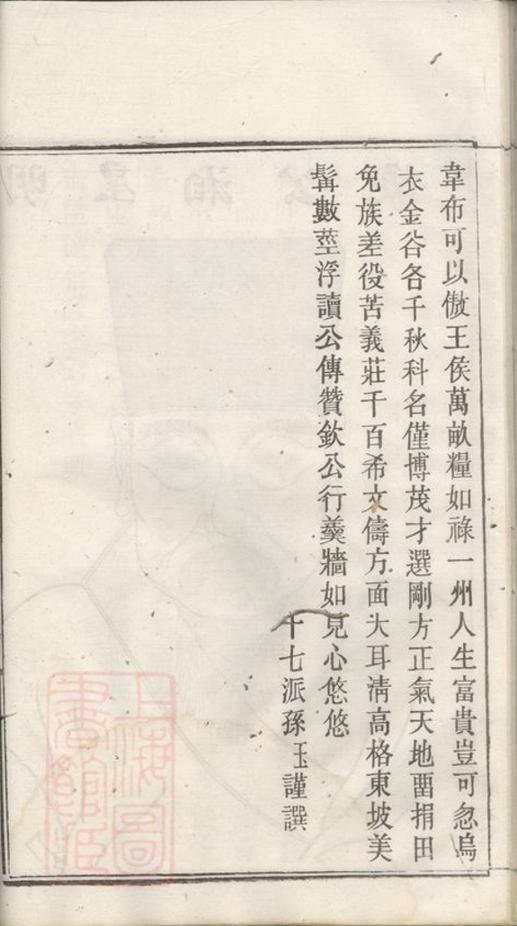 韋布可以傲王侯萬畝糧如祿一州人生富貴豈可忽烏
衣金谷各千秋科名僅博茂才選剛方正氣天地畱捐田
免族差役苦義莊千百希文儔方面大耳清高格東坡美
髯數莖浮讀公傳贊欽公行羹牆如見心悠悠
十七派孫玉謹譔
上海圖
書館藏